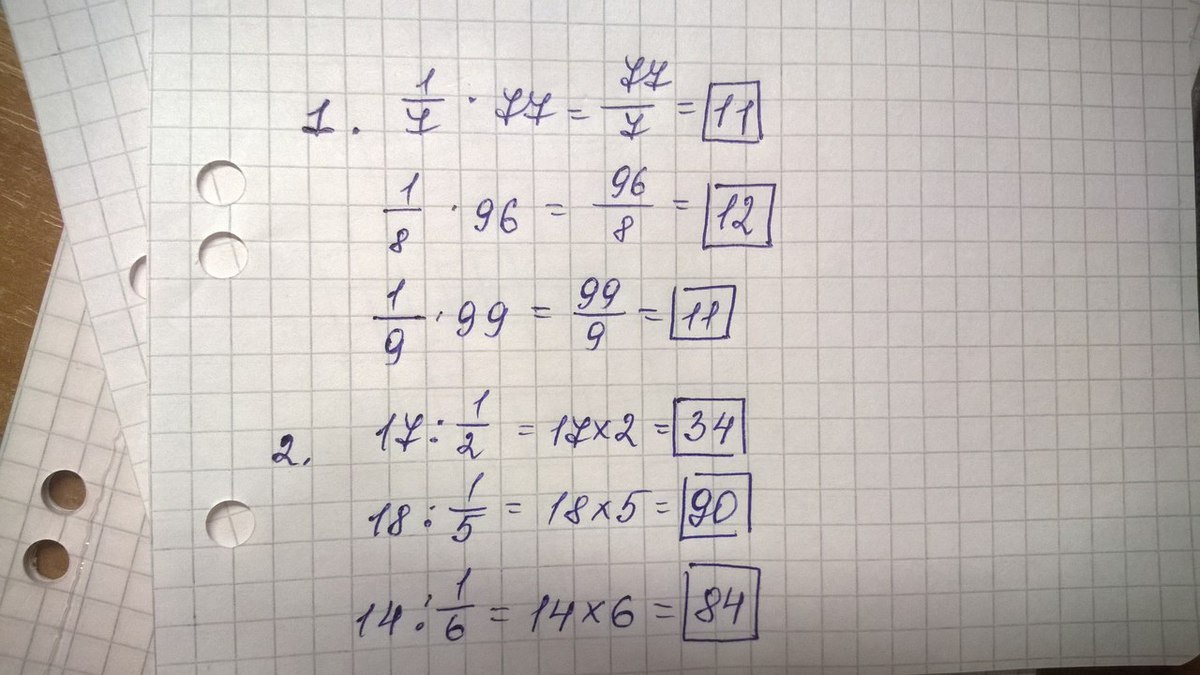 1. 1/7 · 77 = 77/7 = 11
1/8 · 96 = 96/8 = 12
1/9 · 99 = 99/9 = 11
2. 17 : 1/2 = 17×2 = 34
18 : 1/5 = 18×5 = 90
14 : 1/6 = 14×6 = 84